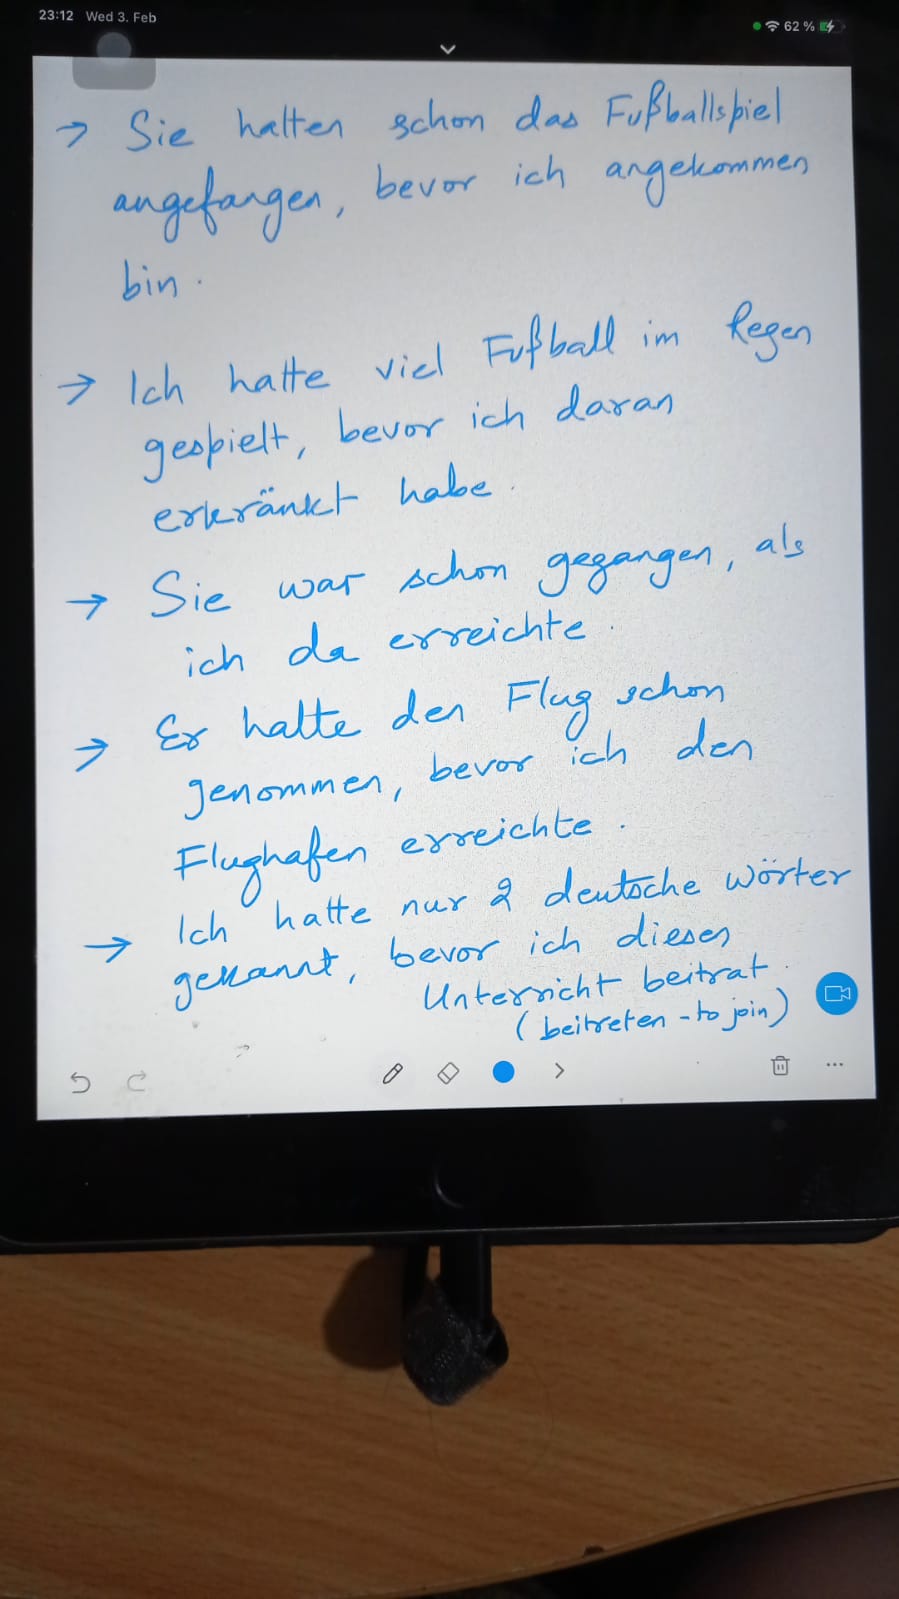 23:12 Wed 3. Feb
62 %
→ Sie hatten schon das Fußballspiel
angefangen, bevor ich angekommen
bin.
→ Ich hatte viel Fußball im Regen
gespielt, bevor ich daran
erkränkt habe.
→ Sie war schon gegangen, als
ich da erreichte.
→ Er hatte den Flug schon
genommen, bevor ich den
Flughafen erreichte.
→ Ich hatte nur 2 deutsche Wörter
gekannt, bevor ich diesen
Unterricht beitrat.
(beitreten - to join)